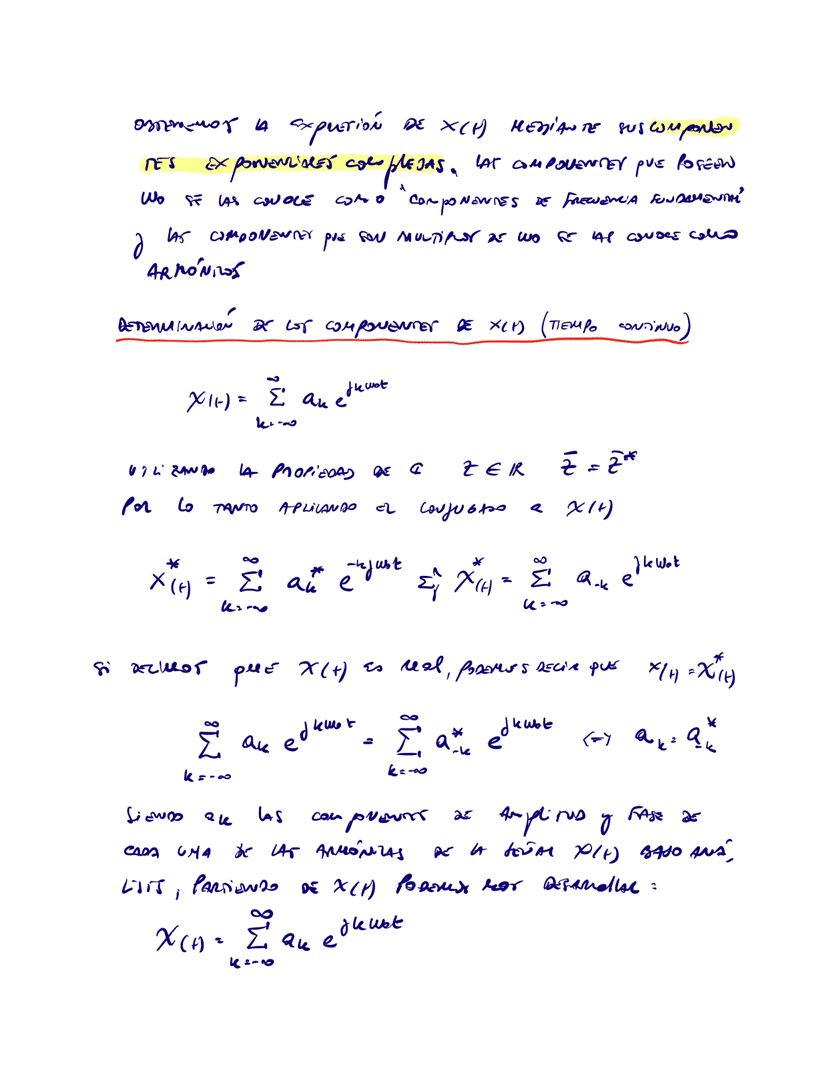 OBTENEMOS LA EXPRESIÓN DE X(t) MEDIANTE SUS COMPONEN
TES EXPONENCIALES COMPLEJAS. LAS COMPONENTES QUE POSEEN
W0 SE LAS CONOCE COMO "COMPONENTES DE FRECUENCIA FUNDAMENTAL"
y LAS COMPONENTES QUE SON MULTIPLOS DE W0 SE LAS CONOCE COMO
ARMÓNICOS
DETERMINACIÓN DE LOS COMPONENTES DE X(t) (TIEMPO CONTINUO)
X(t) = ∑_{k=-∞}^{∞} a_k e^{jkw0t}
UTILIZANDO LA PROPIEDAD DE ℂ Z ∈ ℝ Z̄ = Z̄*
POR LO TANTO APLICANDO EL CONJUGADO a X(t)
X*(t) = ∑_{k=-∞}^{∞} a_k* e^{-kjw0t} X*(t) = ∑_{k=-∞}^{∞} a_{-k} e^{jkw0t}
Si DECIMOS QUE X(t) es real, PODEMOS DECIR QUE X(t) = X*(t)
∑_{k=-∞}^{∞} a_k e^{jkw0t} = ∑_{k=-∞}^{∞} a*_{-k} e^{jkw0t} <-> a_k = a*_{-k}
SIENDO ak LAS COMPONENTES DE AMPLITUD y FASE DE
CADA UNA DE LAS ARMÓNICAS DE LA SEÑAL X(t) BAJO ANÁ
LISIS, PARTIENDO DE X(t) PODEMOS DESARROLLAR:
X(t) = ∑_{k=-∞}^{∞} a_k e^{jkw0t}